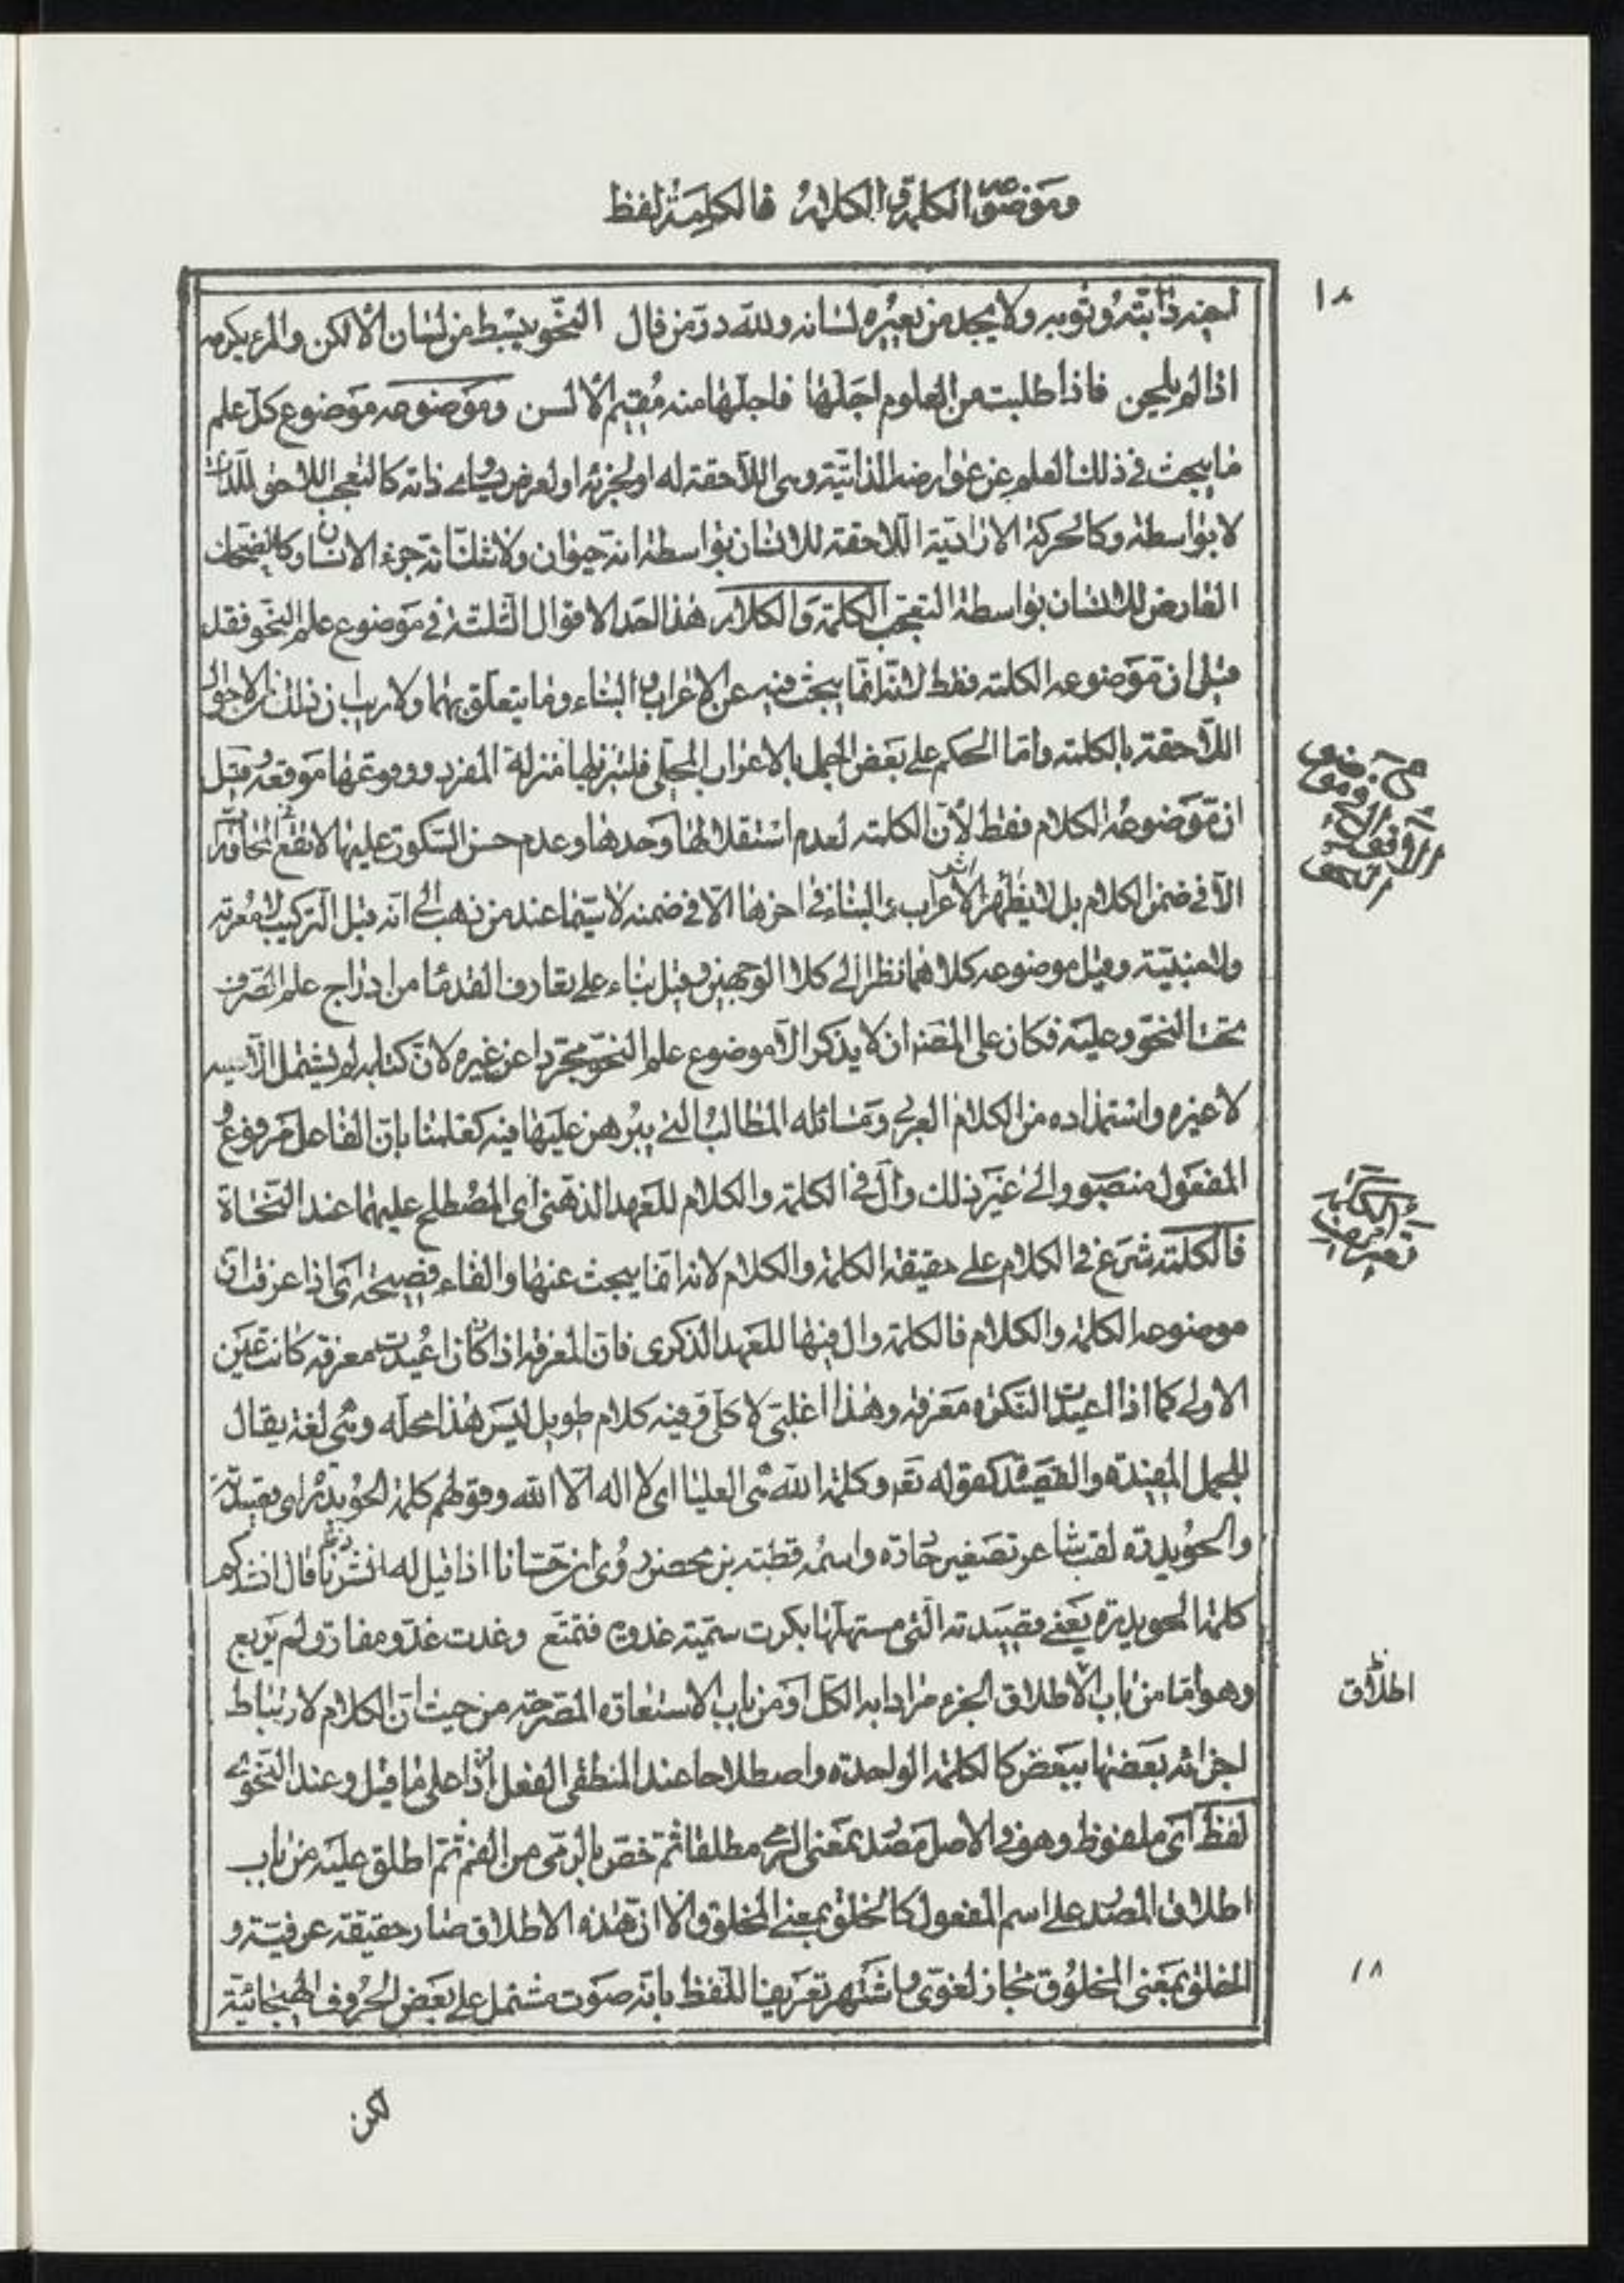 وموضوعه الكلمة والكلام فالكلمة لفظ
١٨
اخيه دابته وثوبه ولا يجد من يعيره لسانه ولله در من قال النحو يبسط من لسان الالكن والمرء يكرمه
اذا لم يلحن فاذا طلبت من العلوم اجلها فاجلها منه مقيم الالسن وموضوعه موضوع كل علم
ما يبحث في ذلك العلم عن عوارضه الذاتية وهى اللاحقة له او لجزئه او لعرض يساوى ذاته كالتعجب اللاحق للذات
لا بواسطة وكالحركة الارادية اللاحقة للانسان بواسطة انه حيوان ولا شك انه جزء الانسان وكالضحك
العارض للانسان بواسطة التعجب الكلمة والكلام هذا احد الاقوال الثلثة في موضوع علم النحو فقد
قيل ان موضوعه الكلمة فقط لانه انما يبحث فيه عن الاعراب والبناء وما يتعلق بهما ولا ريب ان ذلك من الاحوال
اللاحقة بالكلمة واما الحكم على بعض الجمل بالاعراب المحلى فلتنزيلها منزلة المفرد ووقوعها موقعه وقيل
ان موضوعه الكلام فقط لأن الكلمة لعدم استقلالها وحدها وعدم حسن السكوت عليها لا تقع المحاورة
الا في ضمن الكلام بل لا يظهر اثر الاعراب والبناء في اخرها الا في ضمنه لا سيما عند من ذهب الى انه قبل التركيب لا معربة
ولا مبنية وقيل موضوعه كلاهما نظرا الى كلا الوجهين وقيل بناء على تعارف القدما من ادراج علم الصرف
تحت النحو وعليه فكان على المصنف ان لا يذكر الا موضوع علم النحو مجردا عن غيره لان كتابه لم يشتمل الا عليه
لا غيره واستمداده من الكلام العربى ومسائله المطالب التى يبرهن عليها فيه كعلمنا بان الفاعل مرفوع و
المفعول منصوب والى غير ذلك وال في الكلمة والكلام للعهد الذهنى اى المصطلح عليهما عند النحاة
فالكلمة شرع في الكلام على حقيقة الكلمة والكلام لانه انما يبحث عنها والفاء فصيحة اى اذا عرفت ان
موضوعه الكلمة والكلام فالكلمة وال فيها للعهد الذكرى فان المعرفة اذا اعيدت معرفة كانت عين
الاولى كما اذا اعيدت النكرة معرفة وهذا اغلبى لا كلى وفيه كلام طويل ليس هذا محله وهى لغة يقال
للجمل المفيدة والقصيدة كقوله تعم وكلمة الله هى العليا اى لا اله الا الله وقولهم كلمة الحويدرة اى قصيدته
والحويدرة لقب شاعر تصغير حادرة واسمه قطبة بن محصن روى ان حسانا اذا قيل له انشدنا قال انشدكم
كلمة الحويدرة يعنى قصيدته التى مستهلها بكرت سمية غدوة فتمتع وغدت غدو مفارق ولم يربع
وهو اما من باب الاطلاق الجزء مرادا به الكل او من باب الاستعارة المصرحة من حيث ان الكلام لارتباط
اجزائه بعضها ببعض كالكلمة الواحدة واصطلاحا عند المنطقى الفعل اذا على ما قيل وعند النحوى
لفظ اى ملفوظ وهو في الاصل مصدر بمعنى الرمى مطلقا ثم خص بالرمى من الفم ثم اطلق عليه من باب
اطلاق المصدر على اسم المفعول كالخلق بمعنى المخلوق الا ان هذه الاطلاق صار حقيقة عرفية و
الخلق بمعنى المخلوق مجاز لغوى وما شتهر تعريفا للفظ بانه صوت مشتمل على بعض الحروف الهجائية
الكلمة
تعريف
اطلاق
١٨
لكن